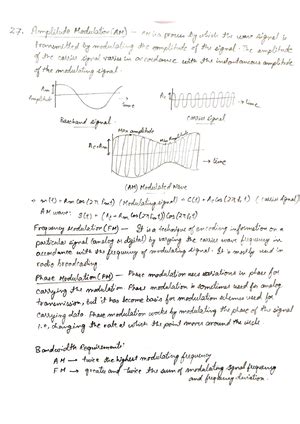 27. Amplitude Modulation (AM) – AM is process by which the wave signal is
transmitted by modulating the amplitude of the signal. The amplitude
of the carrier signal varies in accordance with the instantaneous amplitude
of the modulating signal.
Am
Amplitude
time
Baseband signal
Ac
time
carrier signal
Max amplitude
Min Amplitude
time
(AM) Modulated Wave
m(t) = Am cos(2π fmt) (Modulating signal) C(t) = Ac cos(2π fct) (carrier signal)
AM wave: S(t) =
Frequency Modulation (FM) – It is a technique of encoding information on a
particular signal (analog or digital) by varying the carrier wave frequency in
accordance with the frequency of modulating signal. It is mostly used in
radio broadcasting
Phase Modulation (PM) – Phase modulation uses variations in phase for
carrying the modulation. Phase modulation is sometimes used for analog
transmission, but it has become basis for modulation schemes used for
carrying data. Phase modulation works by modulating the phase of the signal
i.e, changing the rate at which the point moves around the circle
Bandwidth Requirements:
AM → twice the highest modulating frequency
FM → twice the sum of modulating signal frequency
and frequency deviation.